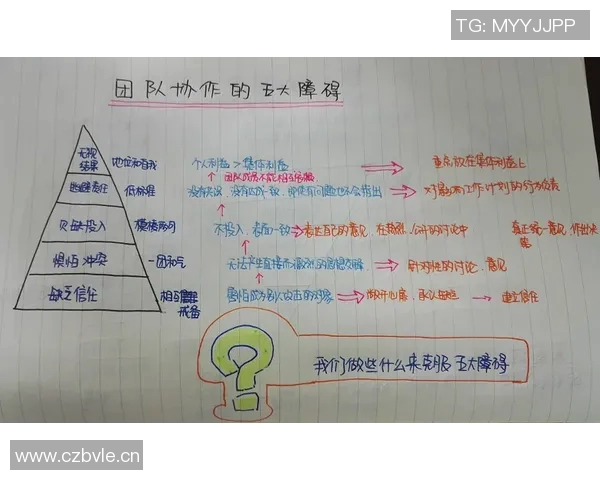 TG: MYYJJPP
团队协作的五大障碍
无视
结果
地位和自我
个人利益 > 集体利益
重点放在集体利益上
团队成员不能相互
逃避责任
低标准
没有
对影响工作计划的行为负责
欠缺投入
模棱两可
不投入,表面一致
表达自己的意见,在
公开的讨论中
真正统一意见,作出决
策
惧怕冲突
一团和气
无法产生直接而激烈的思想交锋
针对性的讨论、意见
缺乏信任
相互
戒备
害怕成为别人攻击的对象
敞开心扉,承认缺点
建立信任
我们做些什么来克服五大障碍
www.czbvle.cn